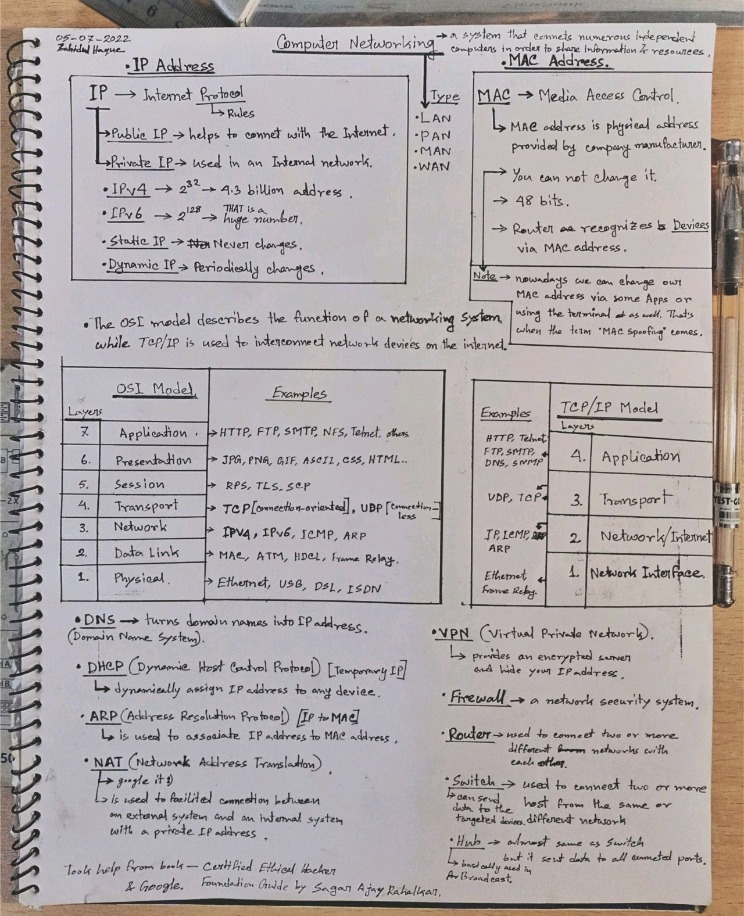 05-07-2022
Zahidul Haque
Computer Networking → a system that connets numerous independent
computers in order to share information & resources.
• IP Address
IP → Internet Protocol
↳ Rules
→ Public IP → helps to connet with the Internet.
→ Private IP → used in an Internal network.
• IPv4 → 2^32 → 4.3 billion address.
• IPv6 → 2^128 → THAT is a
huge number.
• Static IP → Never changes.
• Dynamic IP → Periodically changes.
Type
• LAN
• PAN
• MAN
• WAN
• MAC Address.
MAC → Media Access Control.
↳ MAC address is physical address
provided by company manufacturer.
→ You can not change it.
→ 48 bits.
→ Router recognizes Devices
via MAC address.
Note → nowadays we can change our
MAC address via some Apps or
using the terminal as well. That's
when the term "MAC spoofing" comes.
• The OSI model describes the function of a networking system,
while TCP/IP is used to interconnect network devices on the internet.
OSI Model. Examples
Layers
7. Application. → HTTP, FTP, SMTP, NFS, Telnet, others
6. Presentation → JPG, PNG, GIF, ASCIL, CSS, HTML..
5. Session → RPS, TLS, SCP
4. Transport → TCP [connection-oriented], UBP [connection-
less
3. Network → IPV4, IPV6, ICMP, ARP
2. Data Link → MAC, ATM, HDCL, Frame Relay.
1. Physical. → Ethernet, USB, DSL, ISDN
Examples TCP/IP Model
Layers
HTTP, Telnet
FTP, SMTP
DNS, SNMP
4. Application
UDP, TCP
3. Transport
IP, ICMP,
ARP
2 Network/Internet
Ethernet
Frame Relay.
1. Network Interface.
• DNS → turns domain names into IP address.
(Domain Name System).
• DHCP (Dynamic Host Control Protocol) [Temporary IP]
↳ dynamically assign IP address to any device.
• ARP (Address Resolution Protocol) [IP to MAC]
↳ is used to associate IP address to MAC address.
• NAT (Network Address Translation).
↳ google it :)
↳ is used to facilited connection between
an external system and an internal system
with a private IP address.
• VPN (Virtual Private Network).
↳ provides an encrypted server
and hide your IP address.
• Firewall → a network security system.
• Router → used to connect two or more
different networks with
each other.
• Switch → used to connect two or more
host from the same or
different network
↳ can send
data to the
targeted devices.
• Hub → almost same as Switch
but it sent data to all connected ports.
↳ basically used in
Broadcast.
Took help from book — Certified Ethical Hacker
& Google. Foundation Guide by Sagar Ajay Rahalkar.
TEST-GO